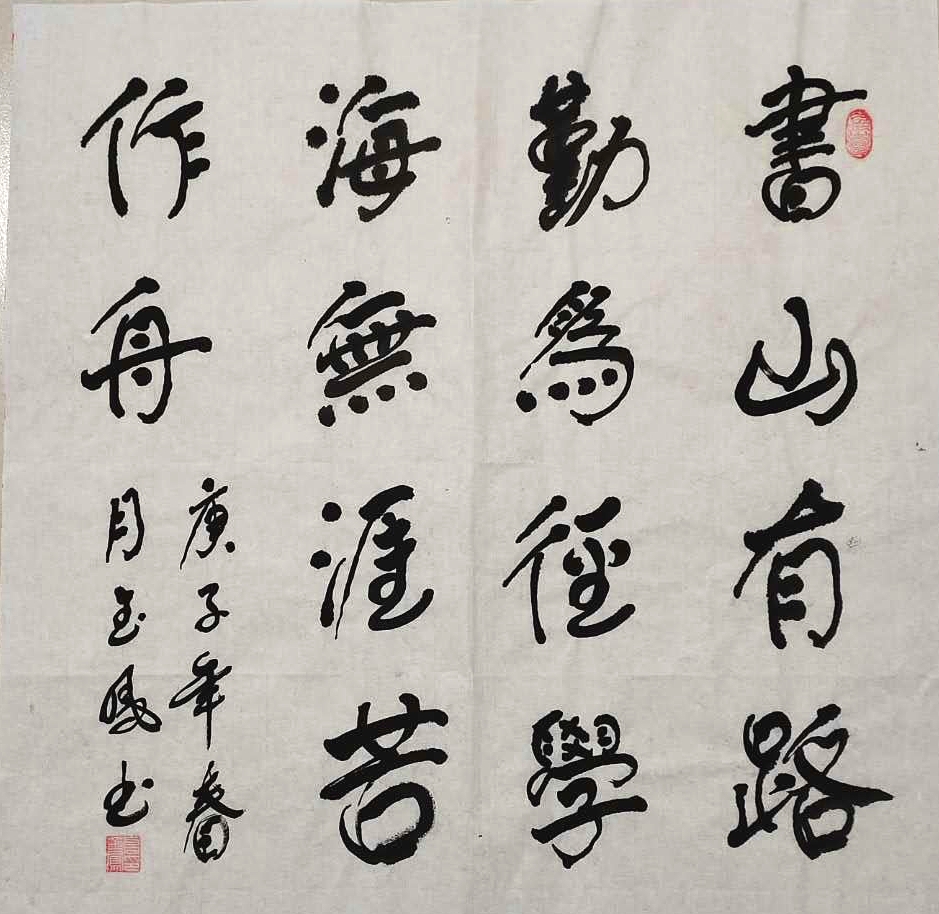 書山有路
勤爲徑學
海無涯苦
作舟
庚子年春
月书